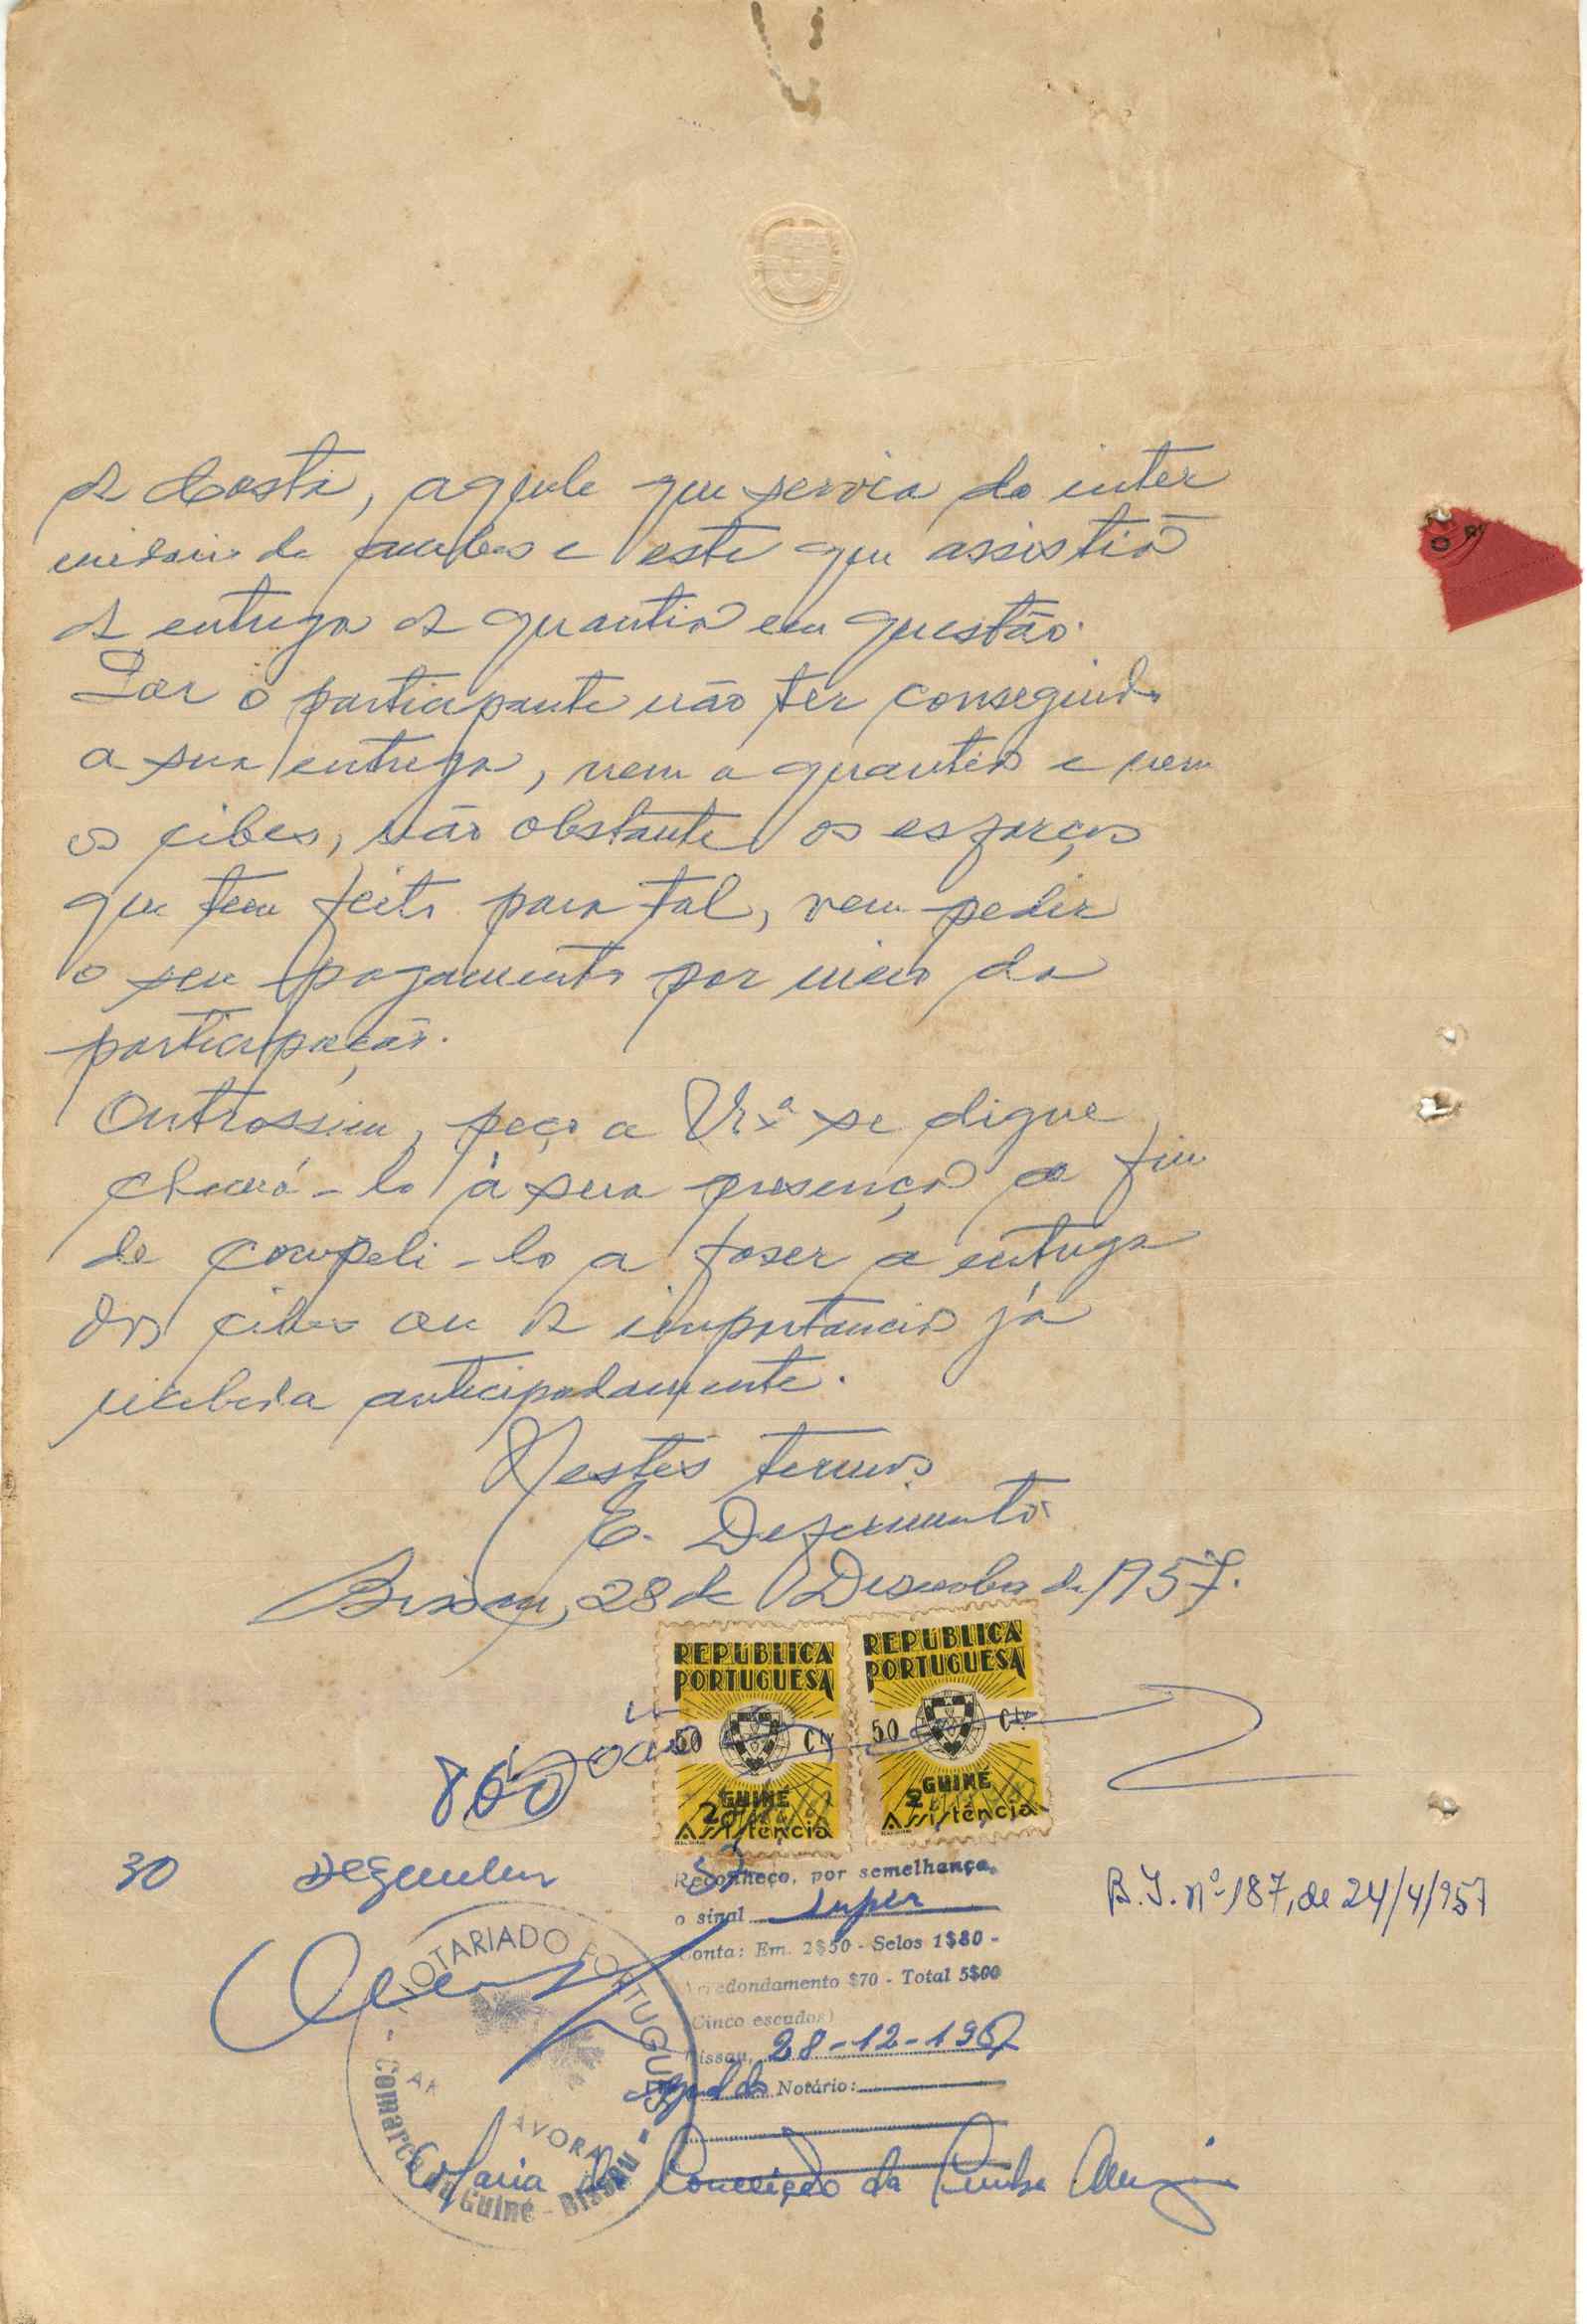 da Costa, aquele que servia de inter
mediário de ambos e este que assistiu
da entrega da quantia em questão.
Por o participante não ter conseguido
a sua entrega, nem a quantia e nem
os cibes, não obstante os esforços
que tem feito para tal, vem pedir
o seu pagamento por meio da
participação.
Outrossim, peço a V. Exª se digne
chamá-lo à sua presença a fim
de compeli-lo a faser a entrega
dos cibes ou da importancia já
recebida antecipadamente.
Nestes termos
E. Deferimento
Bissau, 28 de Desembro de 1957.
REPÚBLICA PORTUGUESA
50 Ctv
GUINÉ
Assistência
REPÚBLICA PORTUGUESA
50 Ctv
GUINÉ
Assistência
30 Dezembro 57
Reconheço, por semelhança,
o sinal super
Conta: Em. 2$50 - Selos 1$80 -
Arredondamento $70 - Total 5$00
(Cinco escudos)
Bissau, 28-12-1957
Notário:
Maria da Conceição da Cunha
B. I. nº 187, de 24/4/957
NOTARIADO PORTUGUÊS
Comarca da Guiné - Bissau